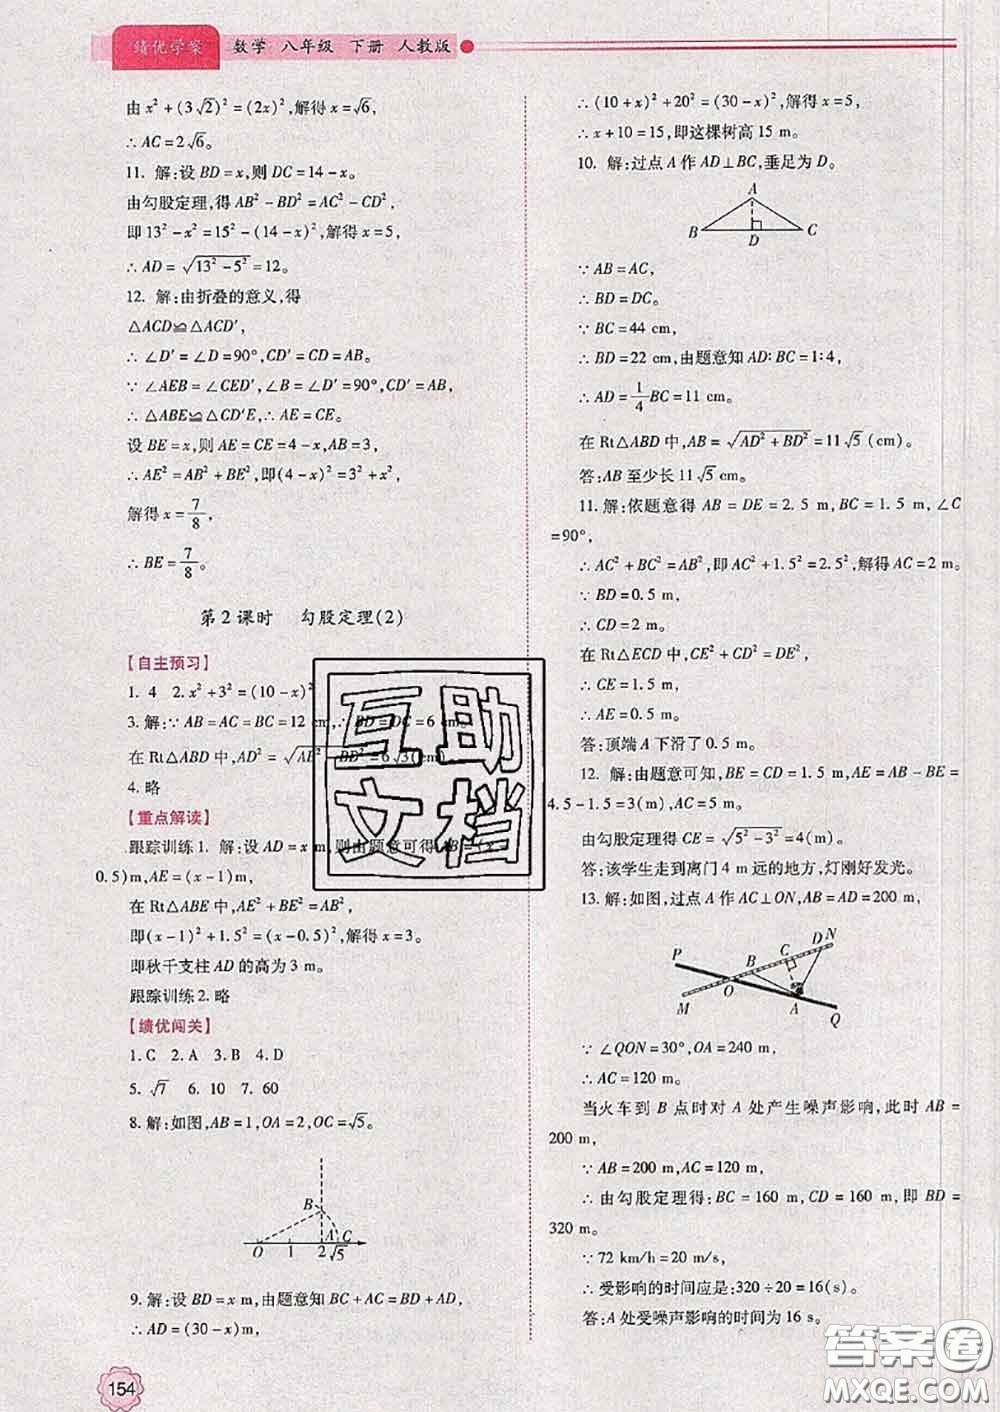 绩优学案 数学 八年级 下册 人教版
由 x²+(3√2)²=(2x)²,解得 x=√6,
∴AC=2√6。
11. 解:设 BD=x,则 DC=14-x。
由勾股定理,得 AB²-BD²=AC²-CD²,
即 13²-x²=15²-(14-x)²,解得 x=5,
∴AD=√(13²-5²)=12。
12. 解:由折叠的意义,得
△ACD≌△ACD′,
∴∠D′=∠D=90°,CD′=CD=AB。
∵∠AEB=∠CED′,∠B=∠D′=90°,CD′=AB,
∴△ABE≌△CD′E,∴AE=CE。
设 BE=x,则 AE=CE=4-x,AB=3,
∴AE²=AB²+BE²,即(4-x)²=3²+x²,
解得 x=7/8,
∴BE=7/8。
第2课时 勾股定理(2)
【自主预习】
1. 4 2. x²+3²=(10-x)²
3. 解:∵AB=AC=BC=12 cm,∴BD=DC=6 cm。
在 Rt△ABD 中,AD²=√(AB²-BD²)=6√3(cm)
4. 略
【重点解读】
跟踪训练1. 解:设 AD=x m,则由题意可得 AB=(x-
0.5)m,AE=(x-1)m,
在 Rt△ABE 中,AE²+BE²=AB²,
即(x-1)²+1.5²=(x-0.5)²,解得 x=3。
即秋千支柱 AD 的高为 3 m。
跟踪训练2. 略
【绩优闯关】
1. C 2. A 3. B 4. D
5. √7 6. 10 7. 60
8. 解:如图,AB=1,OA=2,OC=√5。
B
A C
O 1 2 √5
9. 解:设 BD=x m,由题意知 BC+AC=BD+AD,
∴AD=(30-x)m,
154
∴(10+x)²+20²=(30-x)²,解得 x=5,
∴x+10=15,即这棵树高 15 m。
10. 解:过点 A 作 AD⊥BC,垂足为 D。
A
B D C
∵AB=AC,
∴BD=DC。
∵BC=44 cm,
∴BD=22 cm,由题意知 AD∶BC=1∶4,
∴AD=1/4BC=11 cm。
在 Rt△ABD 中,AB=√(AD²+BD²)=11√5(cm)。
答:AB 至少长 11√5 cm。
11. 解:依题意得 AB=DE=2.5 m,BC=1.5 m,∠C
=90°,
∴AC²+BC²=AB²,即 AC²+1.5²=2.5²,解得 AC=2 m。
∵BD=0.5 m,
∴CD=2 m。
在 Rt△ECD 中,CE²+CD²=DE²,
∴CE=1.5 m,
∴AE=0.5 m。
答:顶端 A 下滑了 0.5 m。
12. 解:由题意可知,BE=CD=1.5 m,AE=AB-BE=
4.5-1.5=3(m),AC=5 m。
由勾股定理得 CE=√(5²-3²)=4(m)
答:该学生走到离门 4 m 远的地方,灯刚好发光。
13. 解:如图,过点 A 作 AC⊥ON,AB=AD=200 m,
P B C D N
M O A Q
∵∠QON=30°,OA=240 m,
∴AC=120 m。
当火车到 B 点时对 A 处产生噪声影响,此时 AB=
200 m,
∵AB=200 m,AC=120 m,
∴由勾股定理得:BC=160 m,CD=160 m,即 BD=
320 m。
∵72 km/h=20 m/s,
∴受影响的时间应是:320÷20=16(s)。
答:A 处受噪声影响的时间为 16 s。
互助
文档
答案圈
MXQE.COM